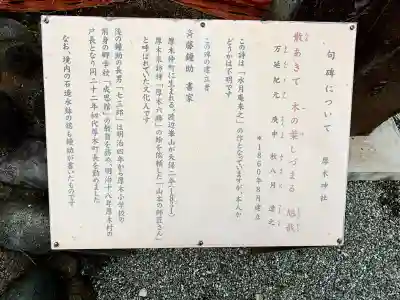 句碑について 厚木神社
散あきて 木の葉しづまる
万延紀元 庚申 秋八月 澄之
＊1860年8月建立
この詩は「水月庵来之」の作となっていますが、本人か
どうかは不明です
この碑の建立者
斉藤鐘助 書家
厚木仲町に生まれる。渡辺崋山が天保二年(1831)
厚木来訪時「厚木六勝」の絵を依頼した「山本の師匠さん」
と呼ばれていた文化人です
後の鐘助の長男「七三郎」は明治四年から厚木小学校の
前身の郷学校「成思館」の教員を務め、明治十八年厚木村の
戸長となり同二十二年初代厚木町長を勤めました
なお、境内の石造水鉢の銘も鐘助が書いたものです